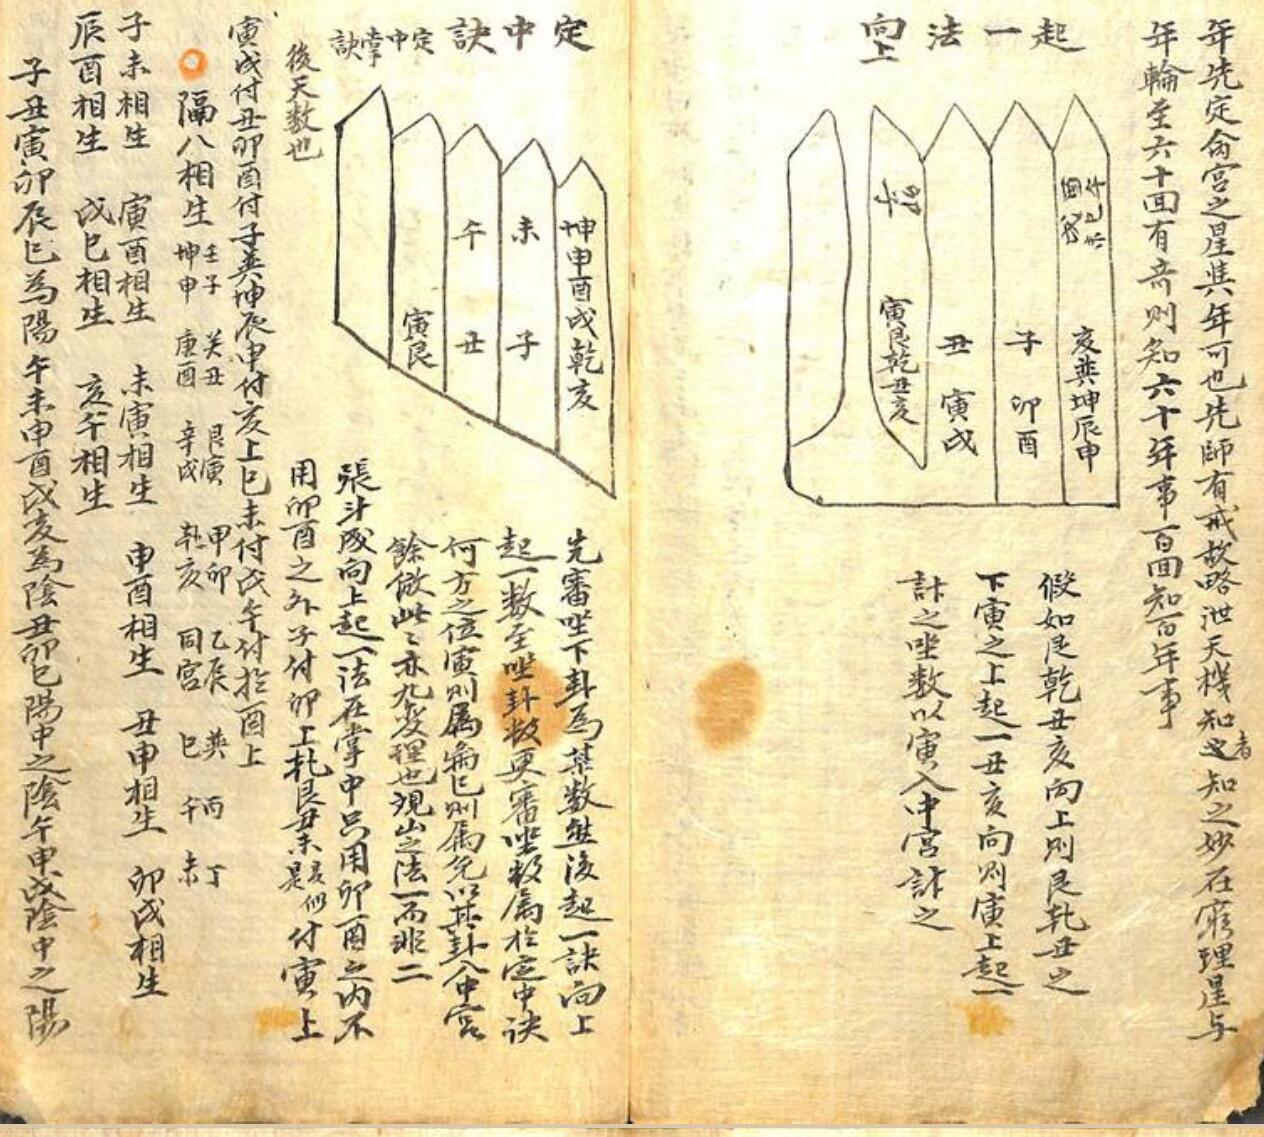 年先定命宮之星與年可也先師有戒故略泄天機知者知之妙在窮理星与
年輪至六十回有奇則知六十年事百回知百年事
起一法向上
午巳未
酉戌
亥巽坤辰申
子
卯酉
丑
寅戌
寅艮乾丑亥
假如艮乾丑亥向上則艮乾丑之
下寅之上起一丑亥向則寅上起一
計之坐数以寅入中宮計之
定中訣
定中掌訣
坤申酉戌乾亥
未
子
午
丑
寅艮
後天数也
先審坐下卦為某数然後起一訣向上
起一数至坐卦数更審坐数属於定中訣
何方之位寅則属 巳則属兌以其卦入中宮
餘倣此ミ亦九変理也現山之法一而非二
張斗成向上起一法在掌中只用卯酉之内不
用卯酉之外子付卯上乾艮丑未亥似是付寅上
寅戌付丑卯酉付子巽坤辰申付亥上巳未付戌午付於酉上
隔八相生
壬子 癸丑 艮寅 甲卯 乙辰 巽 丙 丁
坤申 庚酉 辛戌 乾亥 同宮 巳 午 未
子未相生 寅酉相生 未寅相生 申酉相生 丑申相生 卯戌相生
辰酉相生 戌巳相生 亥午相生
子丑寅卯辰巳為陽午未申酉戌亥為陰丑卯巳陽中之陰午申戌陰中之陽